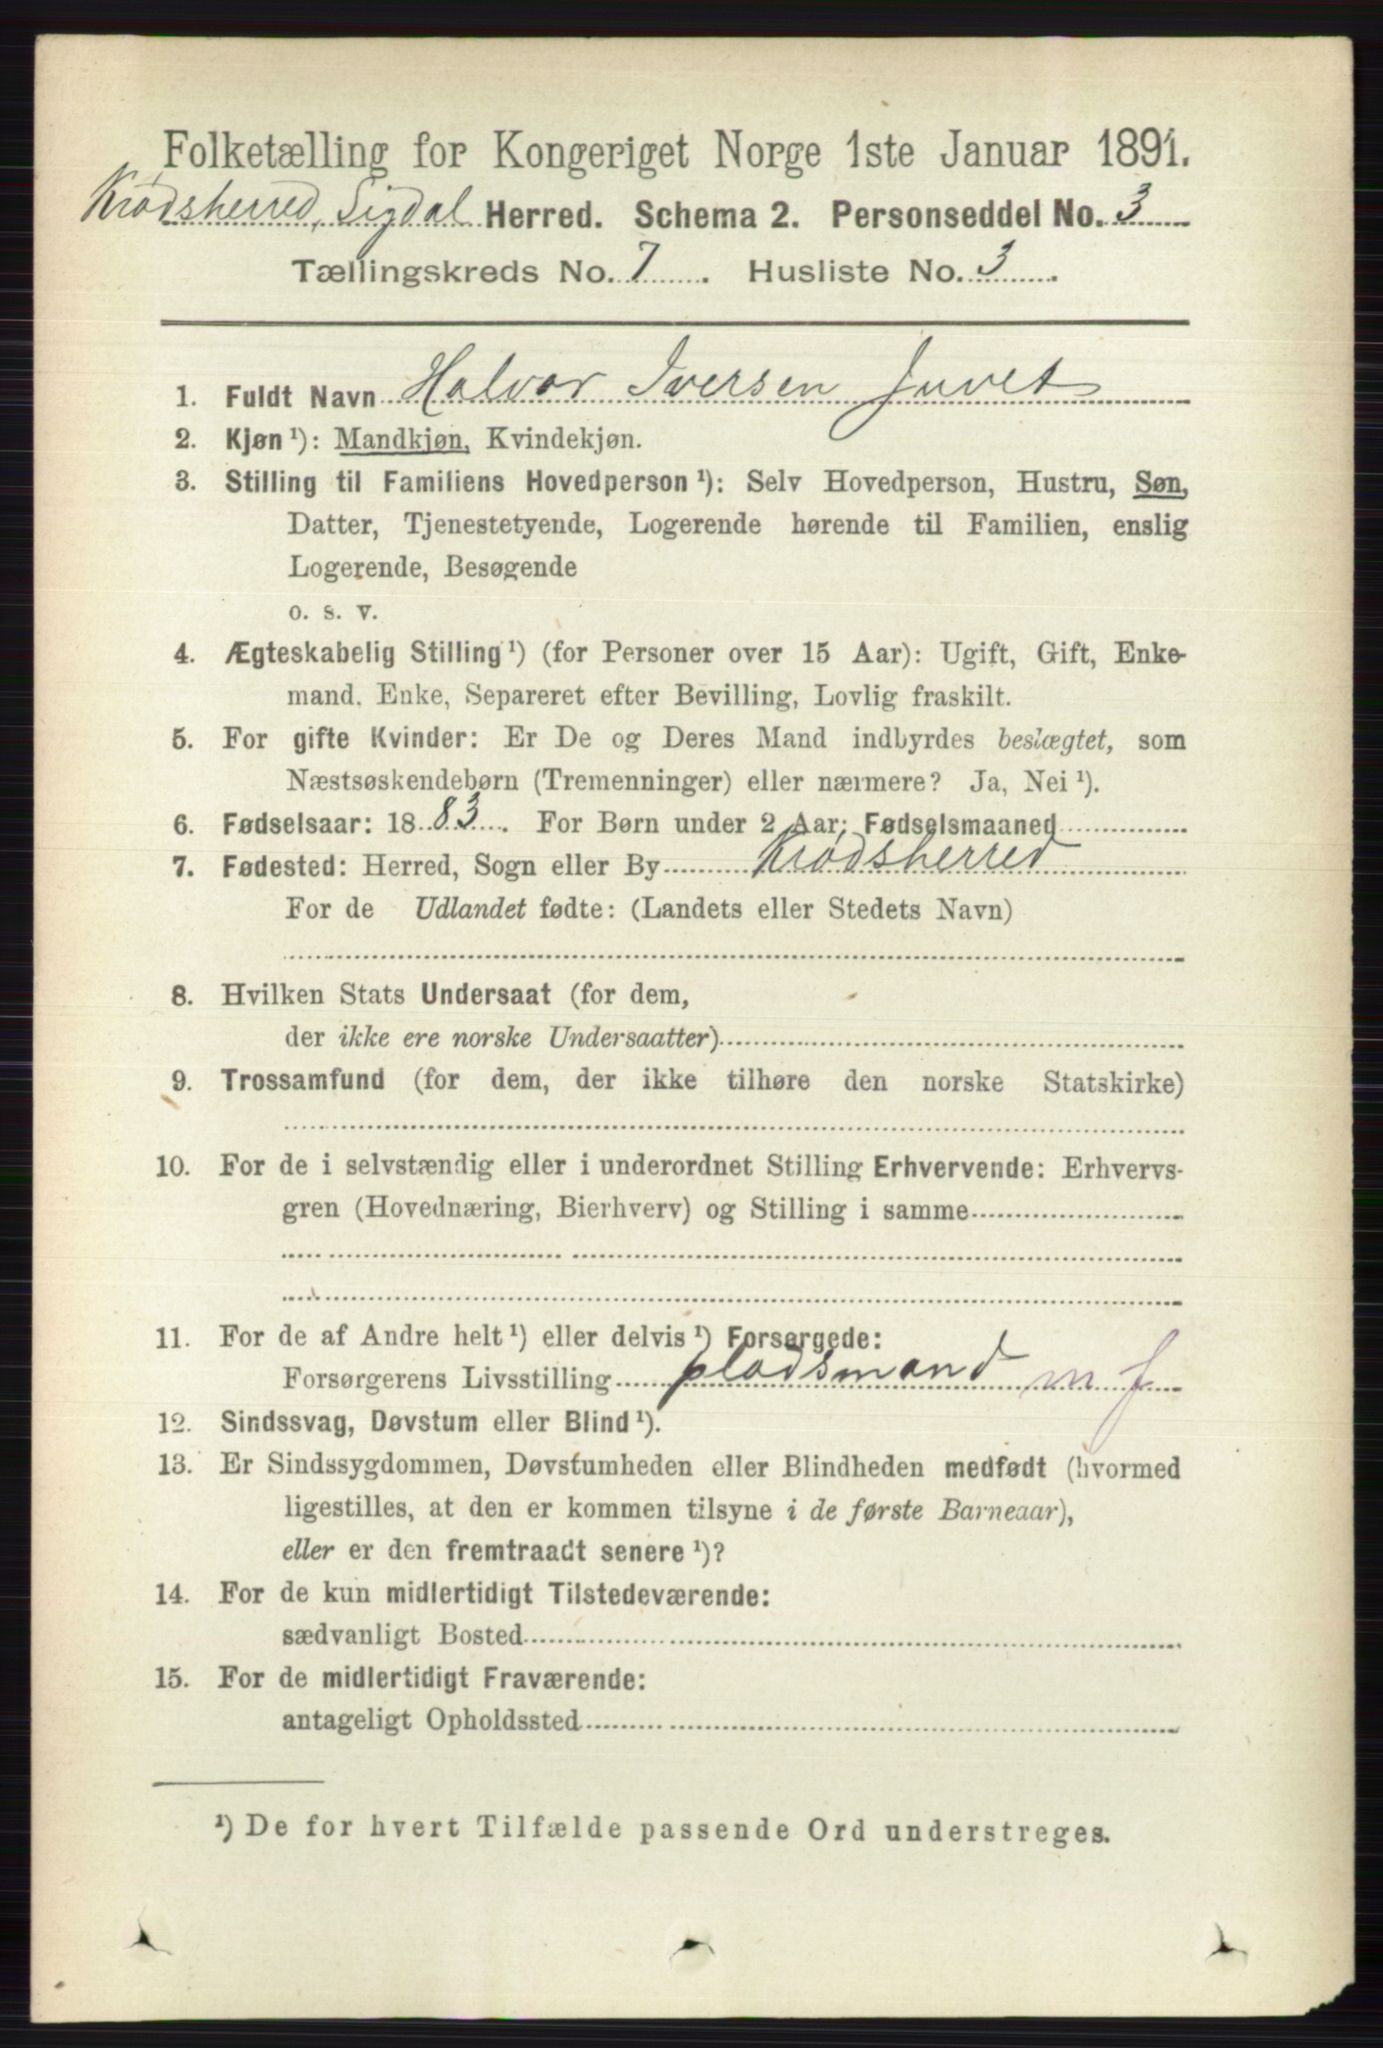 Folketælling for Kongeriget Norge 1ste Januar 1891.
Krødsherred, Sigdal Herred. Schema 2. Personseddel No. 3
Tællingskreds No. 7. Husliste No. 3.
1. Fuldt Navn Halvor Iversen Juvet
2. Kjøn ¹): Mandkjøn, Kvindekjøn.
3. Stilling til Familiens Hovedperson ¹): Selv Hovedperson, Hustru, Søn,
Datter, Tjenestetyende, Logerende hørende til Familien, enslig
Logerende, Besøgende
o. s. v.
4. Ægteskabelig Stilling ¹) (for Personer over 15 Aar): Ugift, Gift, Enke-
mand, Enke, Separeret efter Bevilling, Lovlig fraskilt.
5. For gifte Kvinder: Er De og Deres Mand indbyrdes beslægtet, som
Næstsøskendebørn (Tremenninger) eller nærmere? Ja, Nei ¹).
6. Fødselsaar: 1883. For Børn under 2 Aar: Fødselsmaaned
7. Fødested: Herred, Sogn eller By Krødsherred
For de Udlandet fødte: (Landets eller Stedets Navn)
8. Hvilken Stats Undersaat (for dem,
der ikke ere norske Undersaatter)
9. Trossamfund (for dem, der ikke tilhøre den norske Statskirke)
10. For de i selvstændig eller i underordnet Stilling Erhvervende: Erhvervs-
gren (Hovednæring, Bierhverv) og Stilling i samme
11. For de af Andre helt ¹) eller delvis ¹) Forsørgede:
Forsørgerens Livsstilling pladsmand m f
12. Sindssvag, Døvstum eller Blind ¹).
13. Er Sindssygdommen, Døvstumheden eller Blindheden medfødt (hvormed
ligestilles, at den er kommen tilsyne i de første Barneaar),
eller er den fremtraadt senere ¹)?
14. For de kun midlertidigt Tilstedeværende:
sædvanligt Bosted
15. For de midlertidigt Fraværende:
antageligt Opholdssted
¹) De for hvert Tilfælde passende Ord understreges.